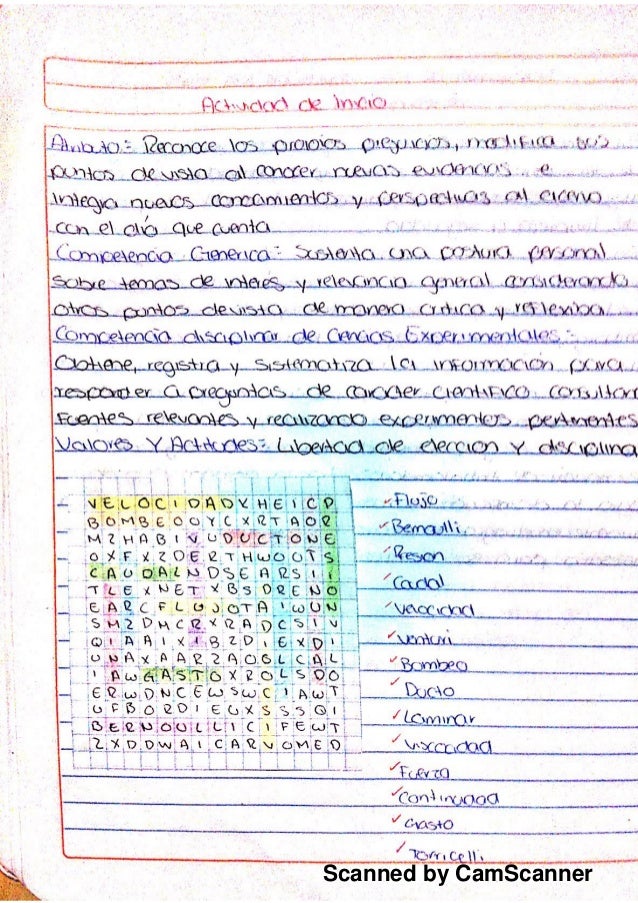 Actividad de Inicio
Atributo: Reconoce los propios prejuicios, modifica sus
puntos de vista al conocer nuevas evidencias e
integra nuevos conocimientos y perspectivas al acervo
con el día que cuenta
Competencia Generica: Sustenta una postura personal
sobre temas de interés y relevancia general considerando
otros puntos de vista de manera critica y reflexiba
Competencia disciplinar de Ciencias Experimentales:
Obtiene, registra y sistematiza la información para
responder a preguntas de carácter cientifico consultan
Fuentes relevantes y realizando experimentos pertinentes
Valores Y Actitudes: Libertad de elección y disciplina
VELOCIDADXHEICP
BOMBEOOYCXRTAOR
MZHABIVUDUCTONE
OXFXZDERTHWOUTS
CAUDALNDSEARSII
TLEXNETXBSDRENO
EARCFLUJOTAIWUN
SMZDMCRXRADCSIV
QIAAIXIBZDIEXDI
UNAXAARZAOGLCAL
IAWGASTOXROLSDO
ERWDNCEWSWCIAWT
UFBORDIEGXSSSQI
BERNOULLICIFEWT
ZXDDWAICARVOMED
Flujo
Bernoulli
Presion
Caudal
Velocidad
Venturi
Bombeo
Ducto
Laminar
Viscocidad
Fuerza
Continuidad
Gasto
Torricelli
Scanned by CamScanner